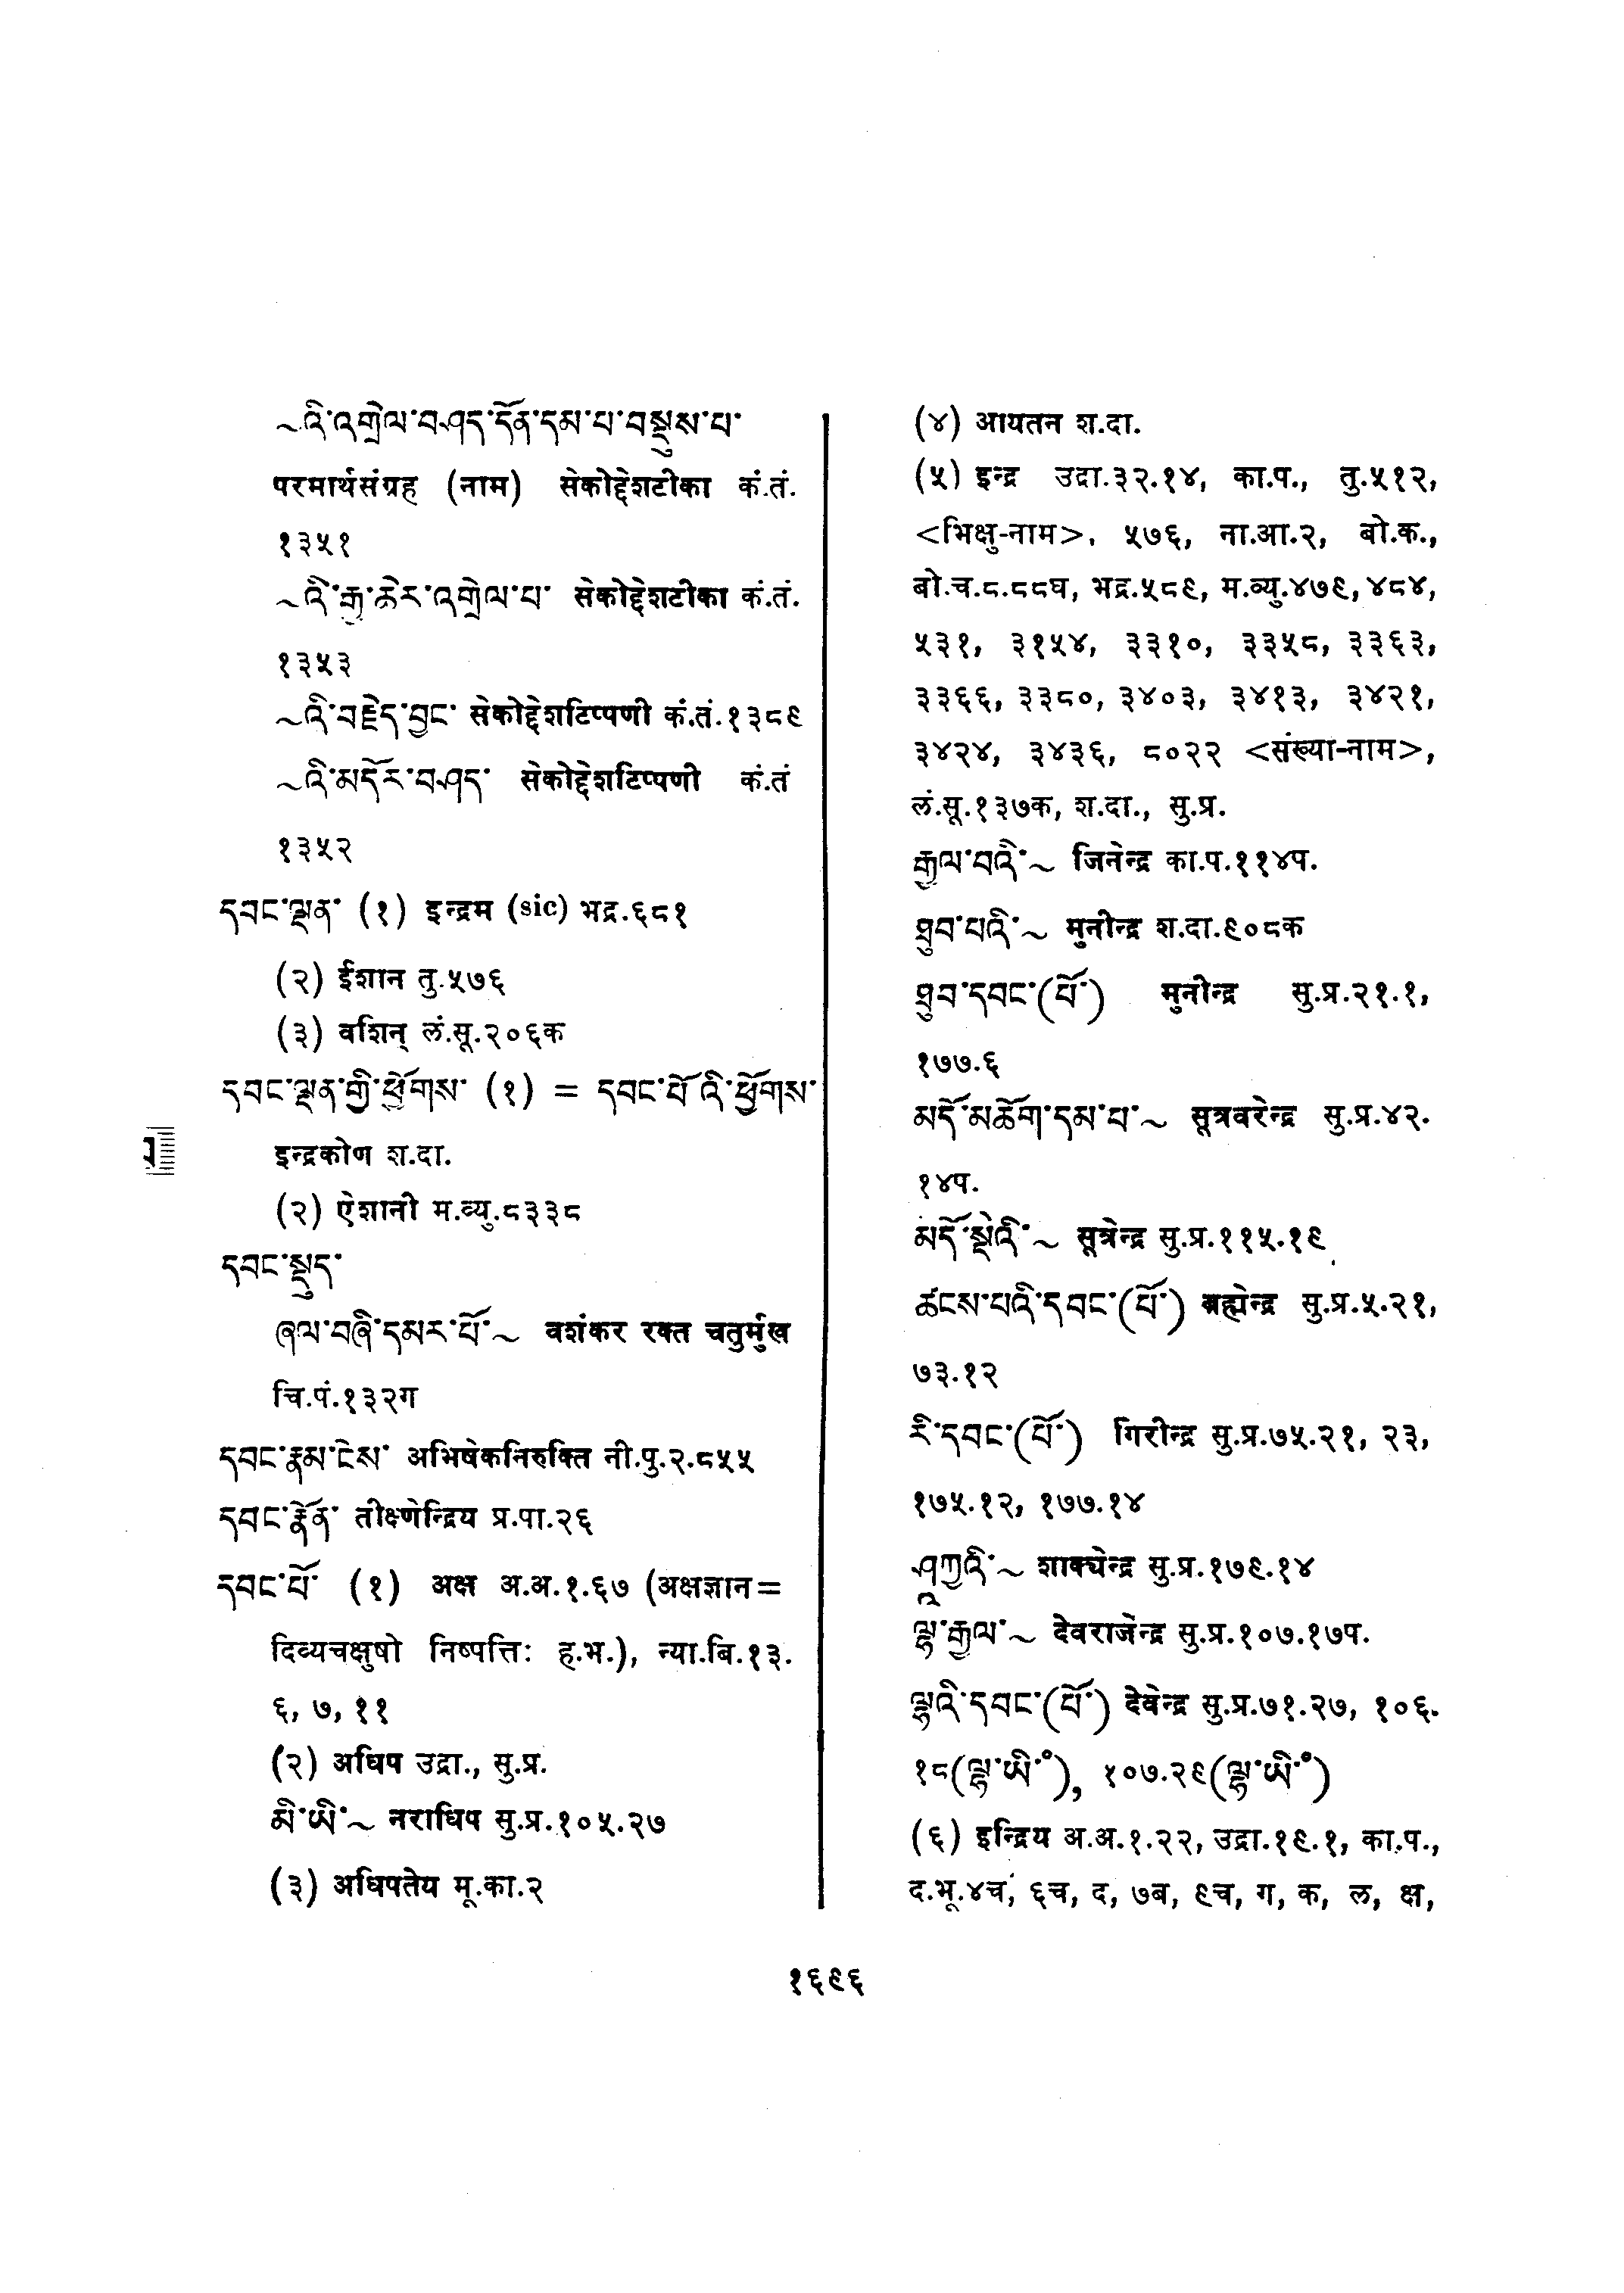 ~འི་འགྲེལ་བཤད་དོན་དམ་པ་བསྡུས་པ་
परमार्थसंग्रह (नाम) सेकोद्देशटीका कं.तं.
१३५१
~འི་རྒྱ་ཆེར་འགྲེལ་པ་ सेकोद्देशटीका कं.तं.
१३५३
~འི་བརྗེད་བྱང་ सेकोद्देशटिप्पणी कं.तं.१३८९
~འི་མདོར་བཤད་ सेकोद्देशटिप्पणी कं.तं
१३५२
དབང་ལྡན་ (१) इन्द्रम (sic) भद्र.६८१
(२) ईशान तु.५७६
(३) वशिन् लं.सू.२०६क
དབང་ལྡན་གྱི་ཕྱོགས་ (१) = དབང་པོ་འི་ཕྱོགས་
इन्द्रकोण श.दा.
(२) ऐशानी म.व्यु.८३३८
དབང་སྡུད་
ཞལ་བཞི་དམར་པོ་~ वशंकर रक्त चतुर्मुख
चि.पं.१३२ग
དབང་རྣམ་ངེས་ अभिषेकनिरुक्ति नी.पु.२.८५५
དབང་རྣོན་ तीक्ष्णेन्द्रिय प्र.पा.२६
དབང་པོ་ (१) अक्ष अ.अ.१.६७ (अक्षज्ञान=
दिव्यचक्षुषो निष्पत्तिः ह.भ.), न्या.बि.१३.
६, ७, ११
(२) अधिप उद्रा., सु.प्र.
མི་ཡི་~ नराधिप सु.प्र.१०५.२७
(३) अधिपतेय मू.का.२
(४) आयतन श.दा.
(५) इन्द्र उद्रा.३२.१४, का.प., तु.५१२,
<भिक्षु-नाम>, ५७६, ना.आ.२, बो.क.,
बो.च.८.८८घ, भद्र.५८९, म.व्यु.४७९, ४८४,
५३१, ३१५४, ३३१०, ३३५८, ३३६३,
३३६६, ३३८०, ३४०३, ३४१३, ३४२१,
३४२४, ३४३६, ८०२२ <संख्या-नाम>,
लं.सू.१३७क, श.दा., सु.प्र.
རྒྱལ་བའི་~ जिनेन्द्र का.प.११४प.
ཐུབ་པའི་~ मुनीन्द्र श.दा.९०८क
ཐུབ་དབང་(པོ་) मुनीन्द्र सु.प्र.२१.१,
१७७.६
མདོ་མཆོག་དམ་པ་~ सूत्रवरेन्द्र सु.प्र.४२.
१४प.
མདོ་སྡེའི་~ सूत्रेन्द्र सु.प्र.११५.१९
ཚངས་པའི་དབང་(པོ་) ब्रह्मेन्द्र सु.प्र.५.२१,
७३.१२
རི་དབང་(པོ་) गिरीन्द्र सु.प्र.७५.२१, २३,
१७५.१२, १७७.१४
ཤཱཀྱའི་~ शाक्येन्द्र सु.प्र.१७९.१४
ལྷ་རྒྱལ་~ देवराजेन्द्र सु.प्र.१०७.१७प.
ལྷའི་དབང་(པོ་) देवेन्द्र सु.प्र.७१.२७, १०६.
१८(ལྷ་ཡི་°), १०७.२९(ལྷ་ཡི་°)
(६) इन्द्रिय अ.अ.१.२२, उद्रा.१९.१, का.प.,
द.भू.४च, ६च, द, ७ब, ९च, ग, क, ल, क्ष,
१६९६